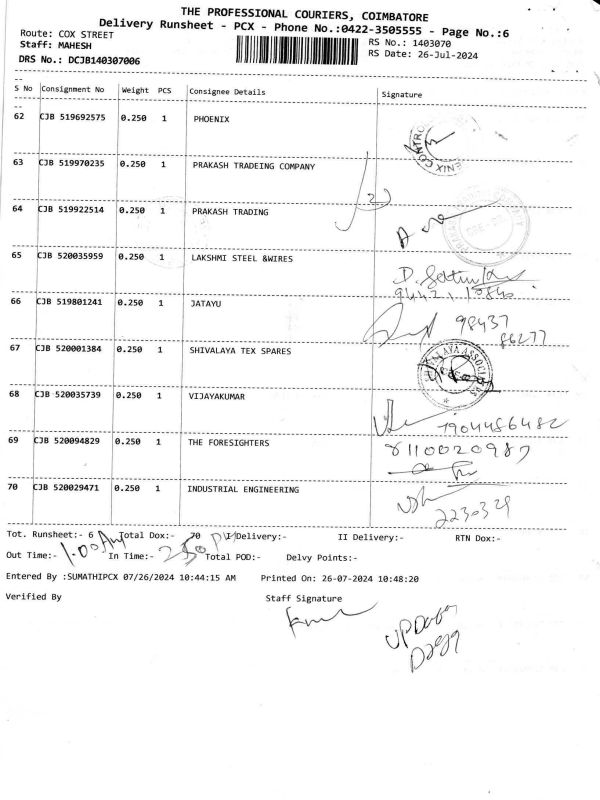 THE PROFESSIONAL COURIERS, COIMBATORE
Delivery Runsheet - PCX - Phone No.:0422-3505555 - Page No.:6
Route: COX STREET
RS No.: 1403070
Staff: MAHESH
RS Date: 26-Jul-2024
DRS No.: DCJB140307006
S No Consignment No Weight PCS Consignee Details Signature
62 CJB 519692575 0.250 1 PHOENIX
63 CJB 519970235 0.250 1 PRAKASH TRADEING COMPANY
64 CJB 519922514 0.250 1 PRAKASH TRADING
65 CJB 520035959 0.250 1 LAKSHMI STEEL &WIRES
66 CJB 519801241 0.250 1 JATAYU
98437
86277
67 CJB 520001384 0.250 1 SHIVALAYA TEX SPARES
68 CJB 520035739 0.250 1 VIJAYAKUMAR
7904486482
69 CJB 520094829 0.250 1 THE FORESIGHTERS
8110020987
70 CJB 520029471 0.250 1 INDUSTRIAL ENGINEERING
2230329
Tot. Runsheet:- 6 Total Dox:- 70 I Delivery:- II Delivery:- RTN Dox:-
Out Time:- 1.00 In Time:- 2.50 PM Total POD:- Delvy Points:-
Entered By :SUMATHIPCX 07/26/2024 10:44:15 AM Printed On: 26-07-2024 10:48:20
Verified By Staff Signature